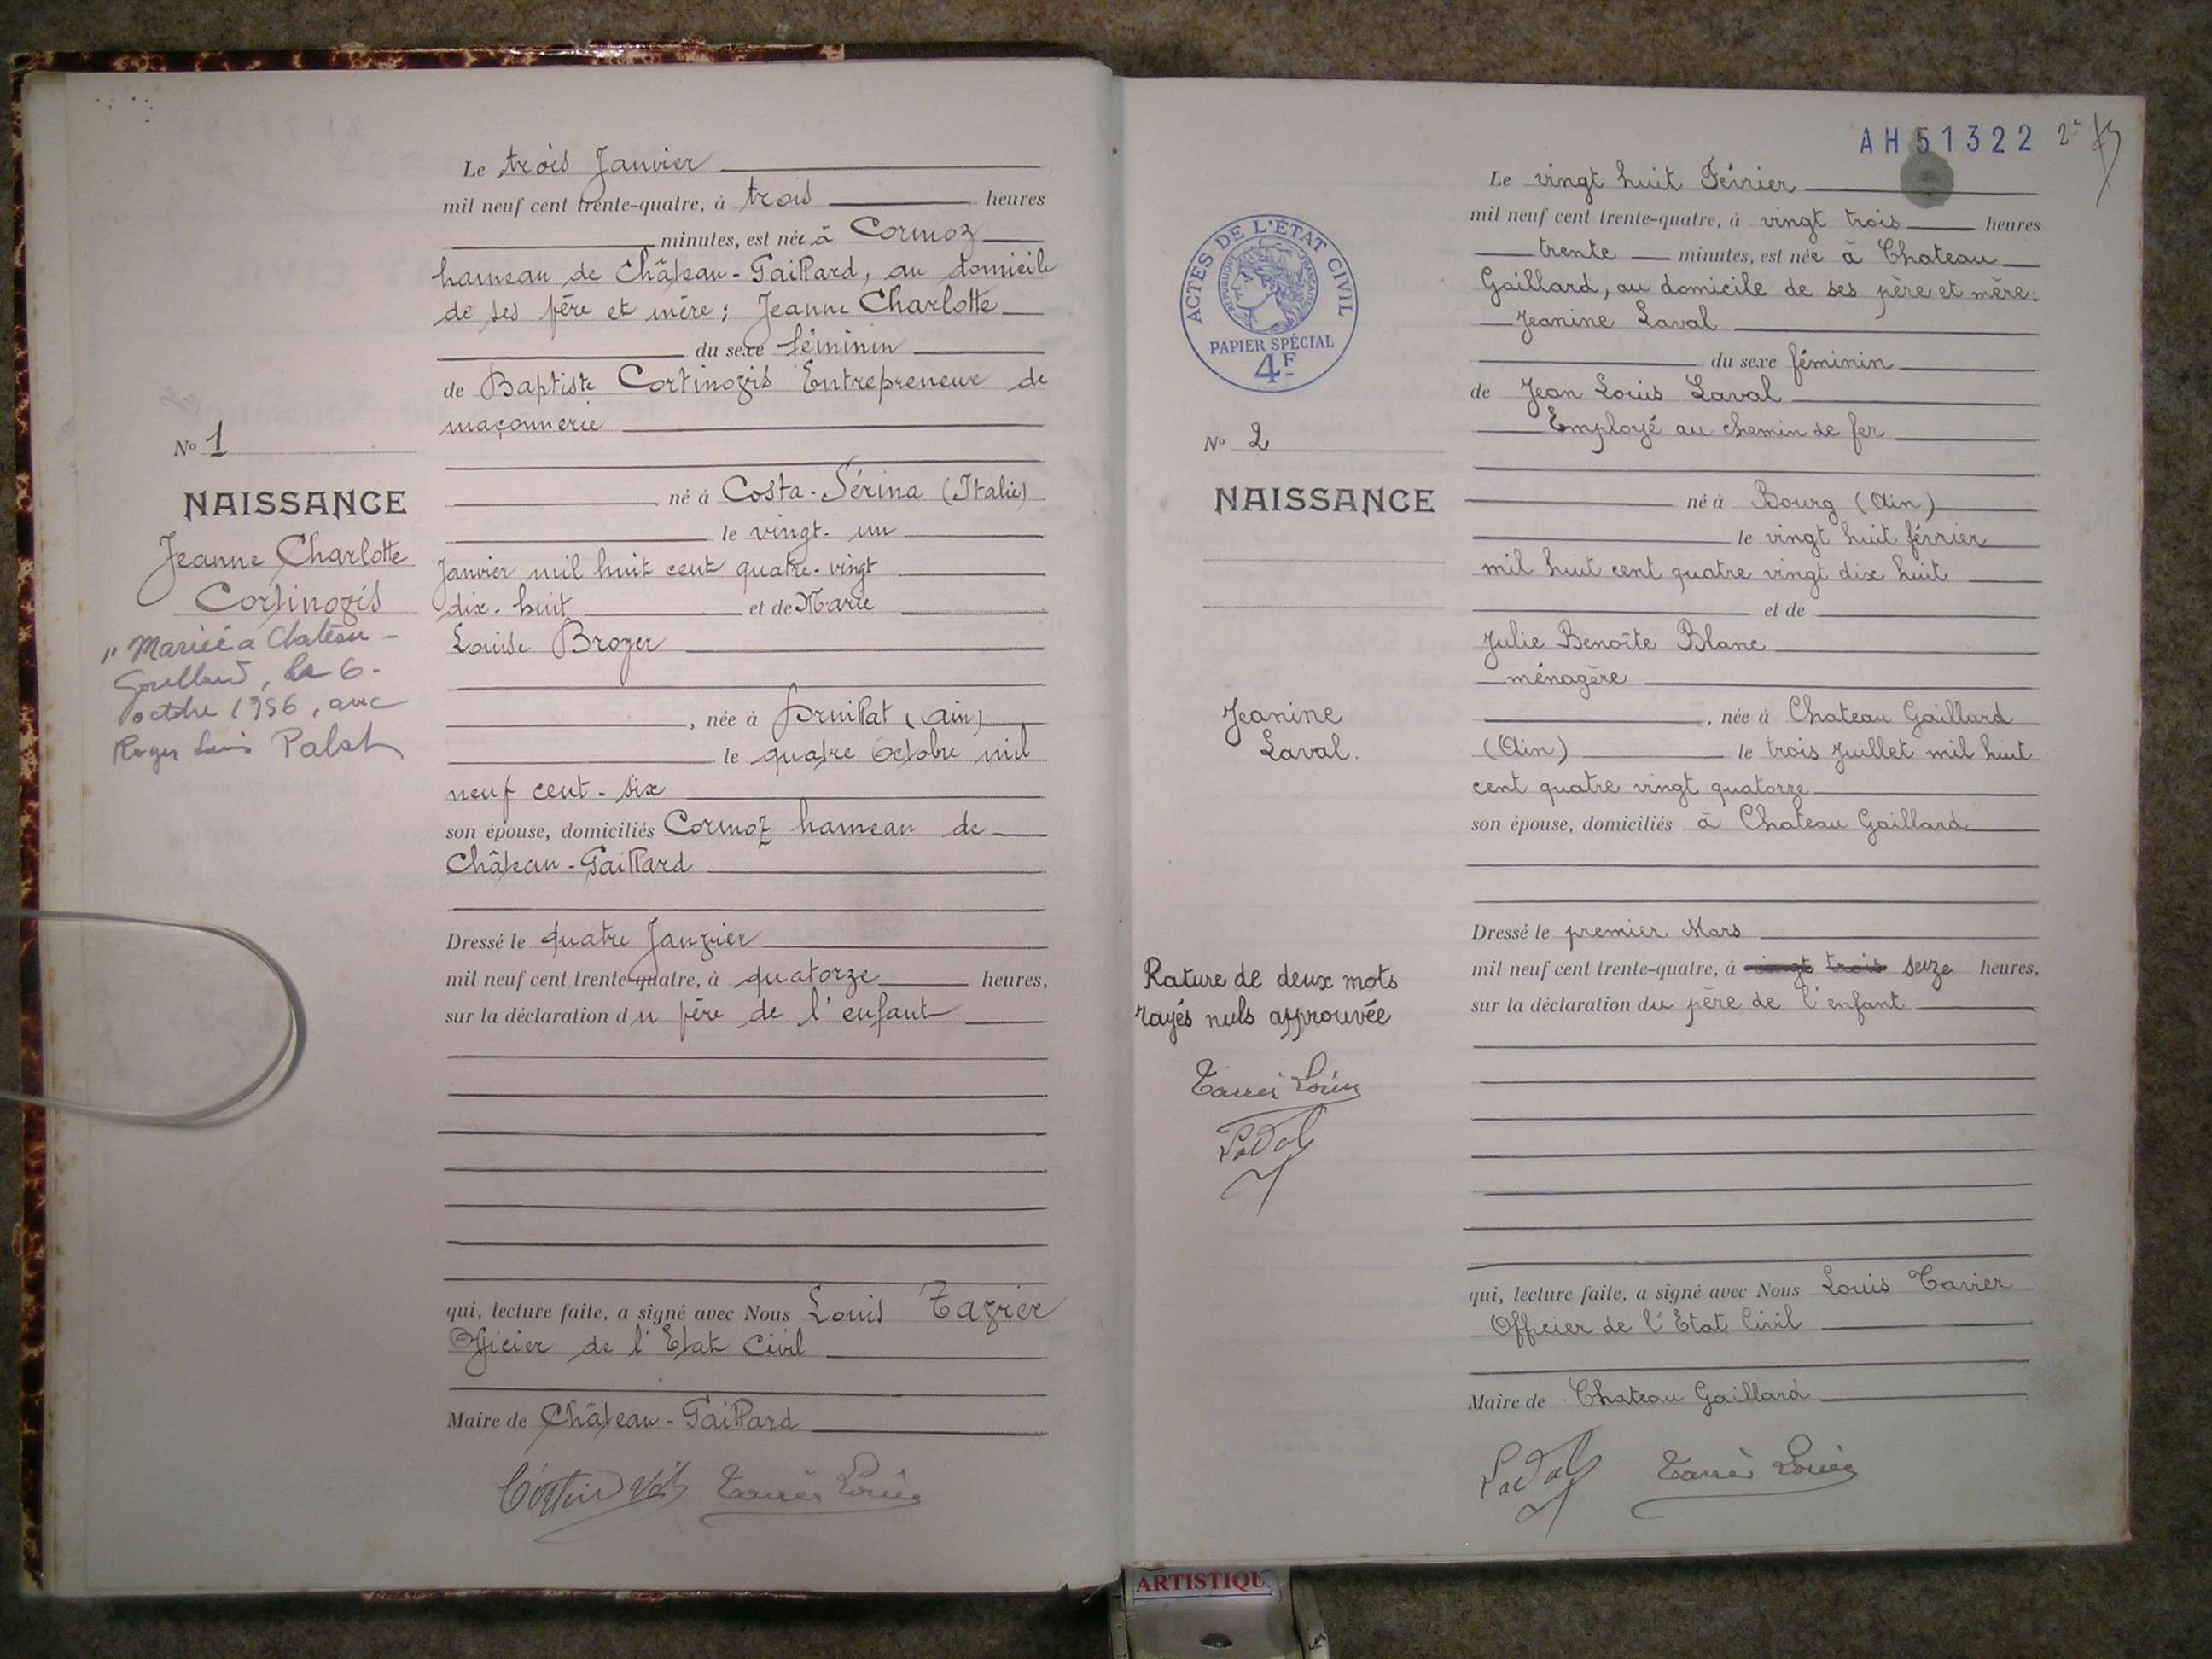 Le trois Janvier
mil neuf cent trente-quatre, à trois heures
minutes, est née à Cormoz
hameau de Château-Gaillard, au domicile
de ses père et mère : Jeanne Charlotte
du sexe féminin
de Baptiste Cortinovis Entrepreneur de
maçonnerie
né à Costa-Sérina (Italie)
le vingt-un
Janvier mil huit cent quatre-vingt
dix-huit et de Marie
Louise Broyer
, née à Druillat (Ain)
le quatre Octobre mil
neuf cent-six
son épouse, domiciliés Cormoz hameau de
Château-Gaillard
Dressé le quatre Janvier
mil neuf cent trente-quatre, à quatorze heures,
sur la déclaration du père de l'enfant
qui, lecture faite, a signé avec Nous Louis Tavier
Officier de l'Etat Civil
Maire de Château-Gaillard
No 1
NAISSANCE
Jeanne Charlotte
Cortinovis
" Mariée à Château-
Gaillard, le 6
octobre 1956, avec
Roger Louis
AH51322 2e
Le vingt huit Février
mil neuf cent trente-quatre, à vingt trois heures
trente minutes, est née à Chateau
Gaillard, au domicile de ses père et mère :
Jeanine Laval
du sexe féminin
de Jean Louis Laval
Employé au chemin de fer
né à Bourg (Ain)
le vingt huit février
mil huit cent quatre vingt dix huit
et de
Julie Benoîte Blanc
ménagère
, née à Chateau Gaillard
(Ain) le trois Juillet mil huit
cent quatre vingt quatorze
son épouse, domiciliés à Chateau Gaillard
Dressé le premier Mars
mil neuf cent trente-quatre, à vingt trois seize heures,
sur la déclaration du père de l'enfant
qui, lecture faite, a signé avec Nous Louis Tavier
Officier de l'Etat Civil
Maire de Chateau Gaillard
Laval Tavier Louis
ACTES DE L'ÉTAT CIVIL
RÉPUBLIQUE FRANÇAISE
PAPIER SPÉCIAL
4F
No 2
NAISSANCE
Jeanine
Laval.
Rature de deux mots
rayés nuls approuvée
Tavier Louis
Laval
Cortinovis Tavier Louis
ARTISTIQU